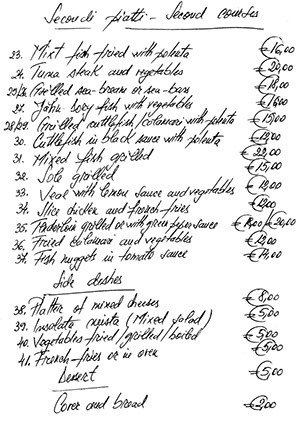 Secondi piatti - Second courses
23. Mixt fish fried with polenta €16,00
24. Tuna steak and vegetables €20,00
25/26 Grilled sea-bream or sea-bars €18,00
27. John-dory fish with vegetables €16,00
28/29. Grilled cuttlefish/calamari with polenta €15,00
30. Cuttlefish in black sauce with polenta
31. Mixed fish grilled €22,00
32. Sole grilled €15,00
33. Veal with lemon sauce and vegetables
34. Slice chicken and french-fries
35. Tenderloin grilled or with green pepper sauce /€20,00
36. Fried calamari and vegetables
37. Fish nuggets in tomato sauce
Side dishes
38. Platter of mixed cheeses €8,00
39. Insalata mista (Mixed salad) €5,00
40. Vegetables fried/grilled/boiled €5,00
41. French-fries or in oven €5,00
Dessert €5,00
Cover and bread €2,00